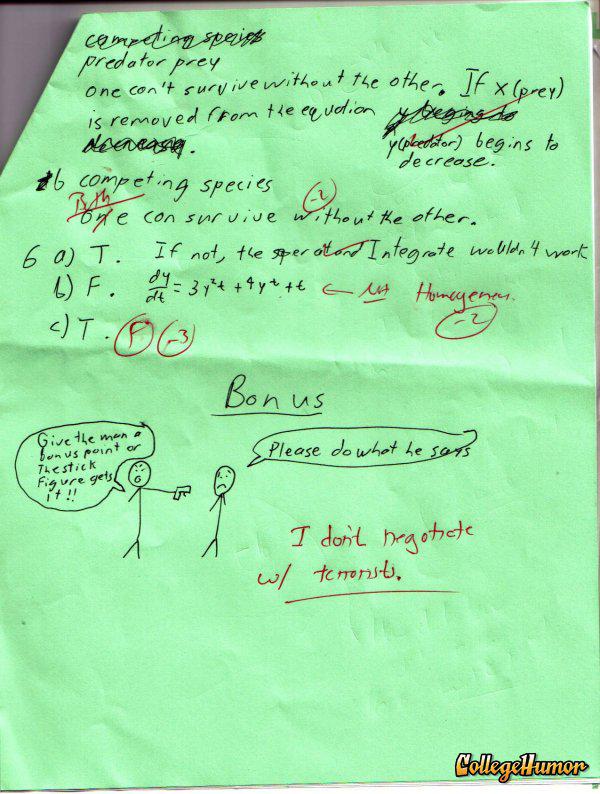 competing species
predator prey
one can't survive without the other. If x(prey)
is removed from the equation y begins to
decrease.
y(predator) begins to
decrease.
b competing species
Both
one can survive without the other.
-2
6 a) T. If not, the Integrate wouldn't work
b) F. dy/dt = 3y²t + 4y^t + t ← Not Homogeneous.
-2
c) T. F -3
Bonus
Give the man a
bonus point or
The stick
Figure gets
it!!
Please do what he says
I don't negotiate
w/ terrorists.
CollegeHumor